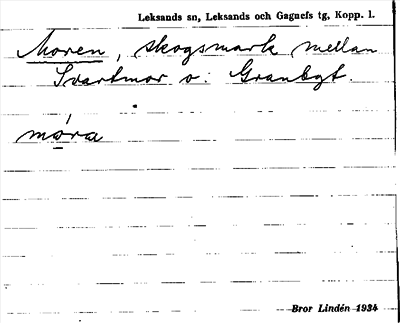 Leksands sn, Leksands och Gagnefs tg, Kopp. l.
Moren, skogsmark mellan
Svartmor o. Granbyt.
mo̲ra
Bror Lindén 1934